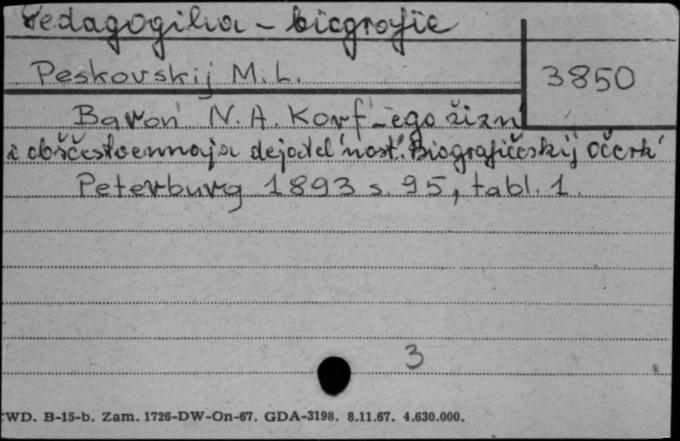 Pedagogika - biografie
Peskovskij M.L.
3850
Baron N.A. Korf - ego žizn'
i obščestvennaja dejatel'nost'. Biografičeskij očerk
Peterburg 1893 s. 95, tabl. 1.
3
CWD. B-15-b. Zam. 1726-DW-On-67. GDA-3198. 8.11.67. 4.630.000.